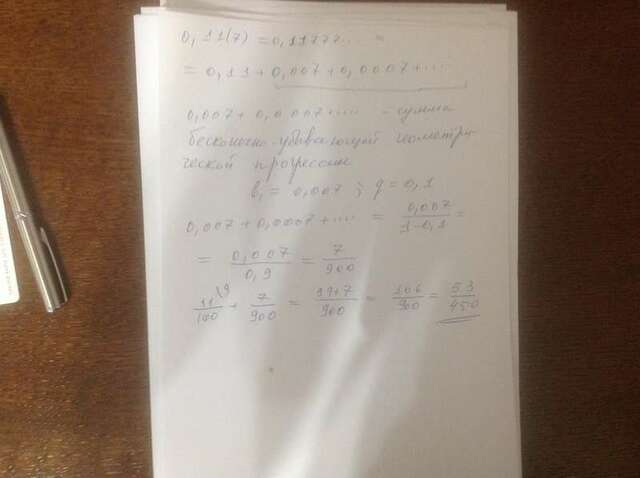 0,11(7) = 0,11777... =
= 0,11 + 0,007 + 0,0007 + ....
0,007 + 0,0007 + .... - сумма
бесконечно убывающей геометри-
ческой прогрессии
b₁ = 0,007 ; q = 0,1
0,007 + 0,0007 + .... = 0,007/1-0,1 =
= 0,007/0,9 = 7/900
11/100 \9 + 7/900 = 99+7/900 = 106/900 = 53/450